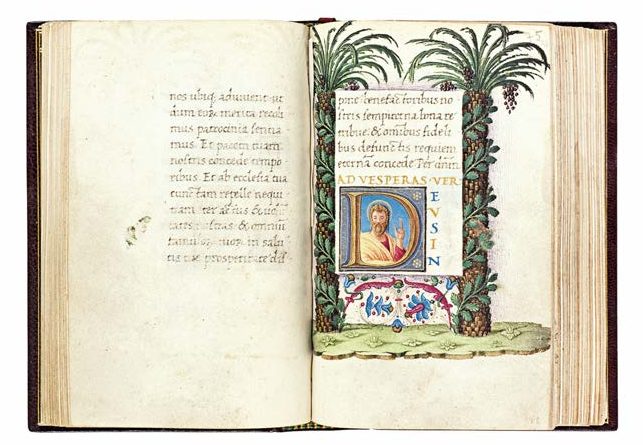 nos ubiq; adiuvent: ut
dum eoꝝ merita recoli
mus patrocinia sentia
mus. Et pacem tuam
nostris concede tempo
ribus. Et ab ecclesia tua
cunctam repelle nequi
tiam iter actus &
tates nostras & omniū
famuloꝝ tuoꝝ in salu
tis tue prosperitate dis
pone benefactoribus no
stris sempiterna bona re
tribue: & omnibus fideli
bus defunctis requiem
eternā concede Per dñm
AD VESPERAS · VER
D
E
V
S
I
N